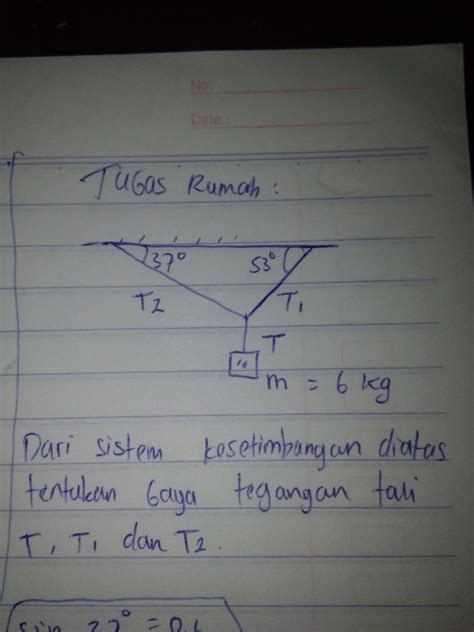 No.
Date :
Tugas Rumah :
37° 53°
T2 T1
T
m = 6 kg
Dari sistem kesetimbangan diatas
tentukan Gaya tegangan tali
T, T1 dan T2.
sin 37° = 0.6